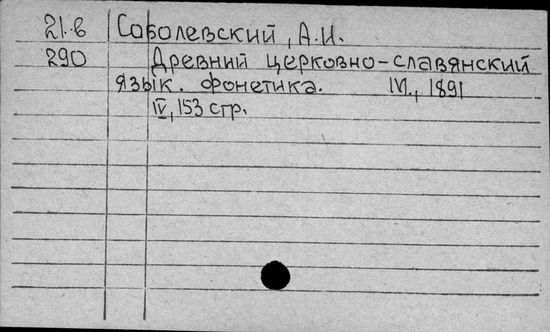 21.в Соболевский, А.И.
290 Древний церковно-славянский
язык. фонетика. М., 1891
IV, 153 стр.